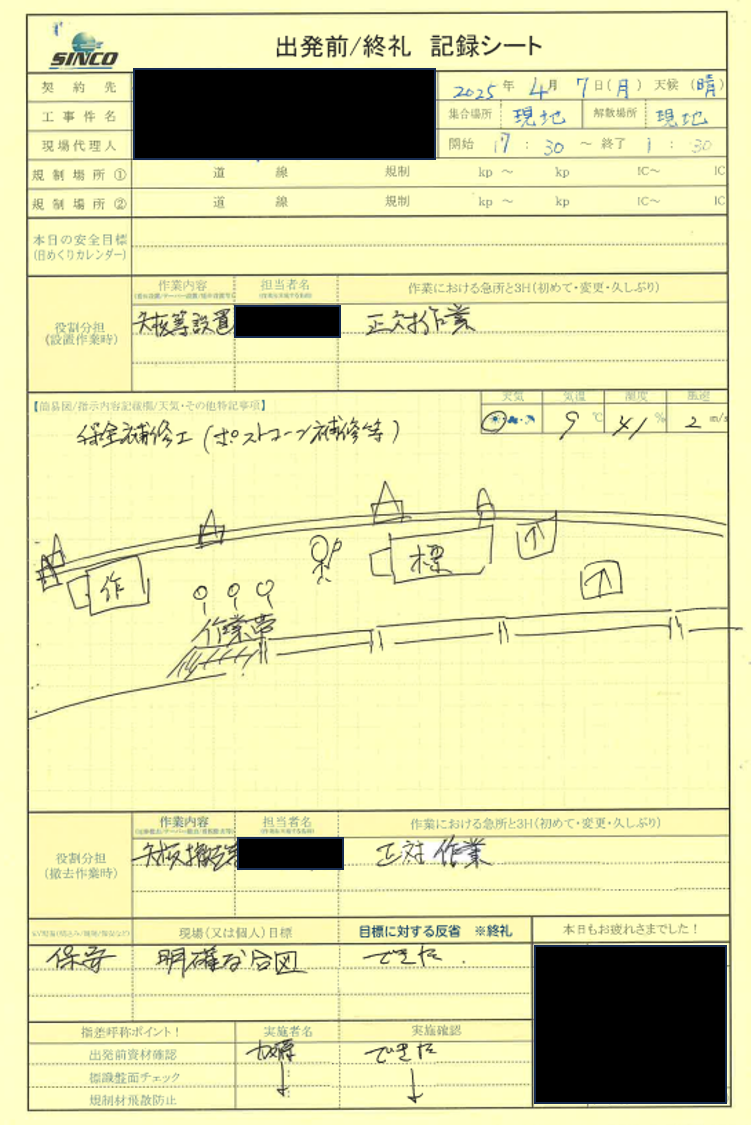 SINCO
出発前/終礼 記録シート
契約先
2025年 4月 7日(月) 天候(晴)
工事件名
集合場所 現地 解散場所 現地
現場代理人
開始 17:30 ~ 終了 1:30
規制場所① 道 線 規制 kp ~ kp IC~ IC
規制場所② 道 線 規制 kp ~ kp IC~ IC
本日の安全目標
(日めくりカレンダー)
役割分担
(設置作業時)
作業内容 担当者名 作業における急所と3H(初めて・変更・久しぶり)
矢板等設置 正対作業
【簡易図/指示内容記載欄/天気・その他特記事項】
天気 気温 湿度 風速
9℃ 41% 2m/s
保全補修工(ポストコーン補修等)
標
作
作業帯
役割分担
(撤去作業時)
作業内容 担当者名 作業における急所と3H(初めて・変更・久しぶり)
矢板撤去 正対作業
現場(又は個人)目標 目標に対する反省 ※終礼 本日もお疲れさまでした!
保安 明確な合図 できた.
指差呼称ポイント! 実施者名 実施確認
出発前資材確認 できた
標識盤面チェック
規制材飛散防止